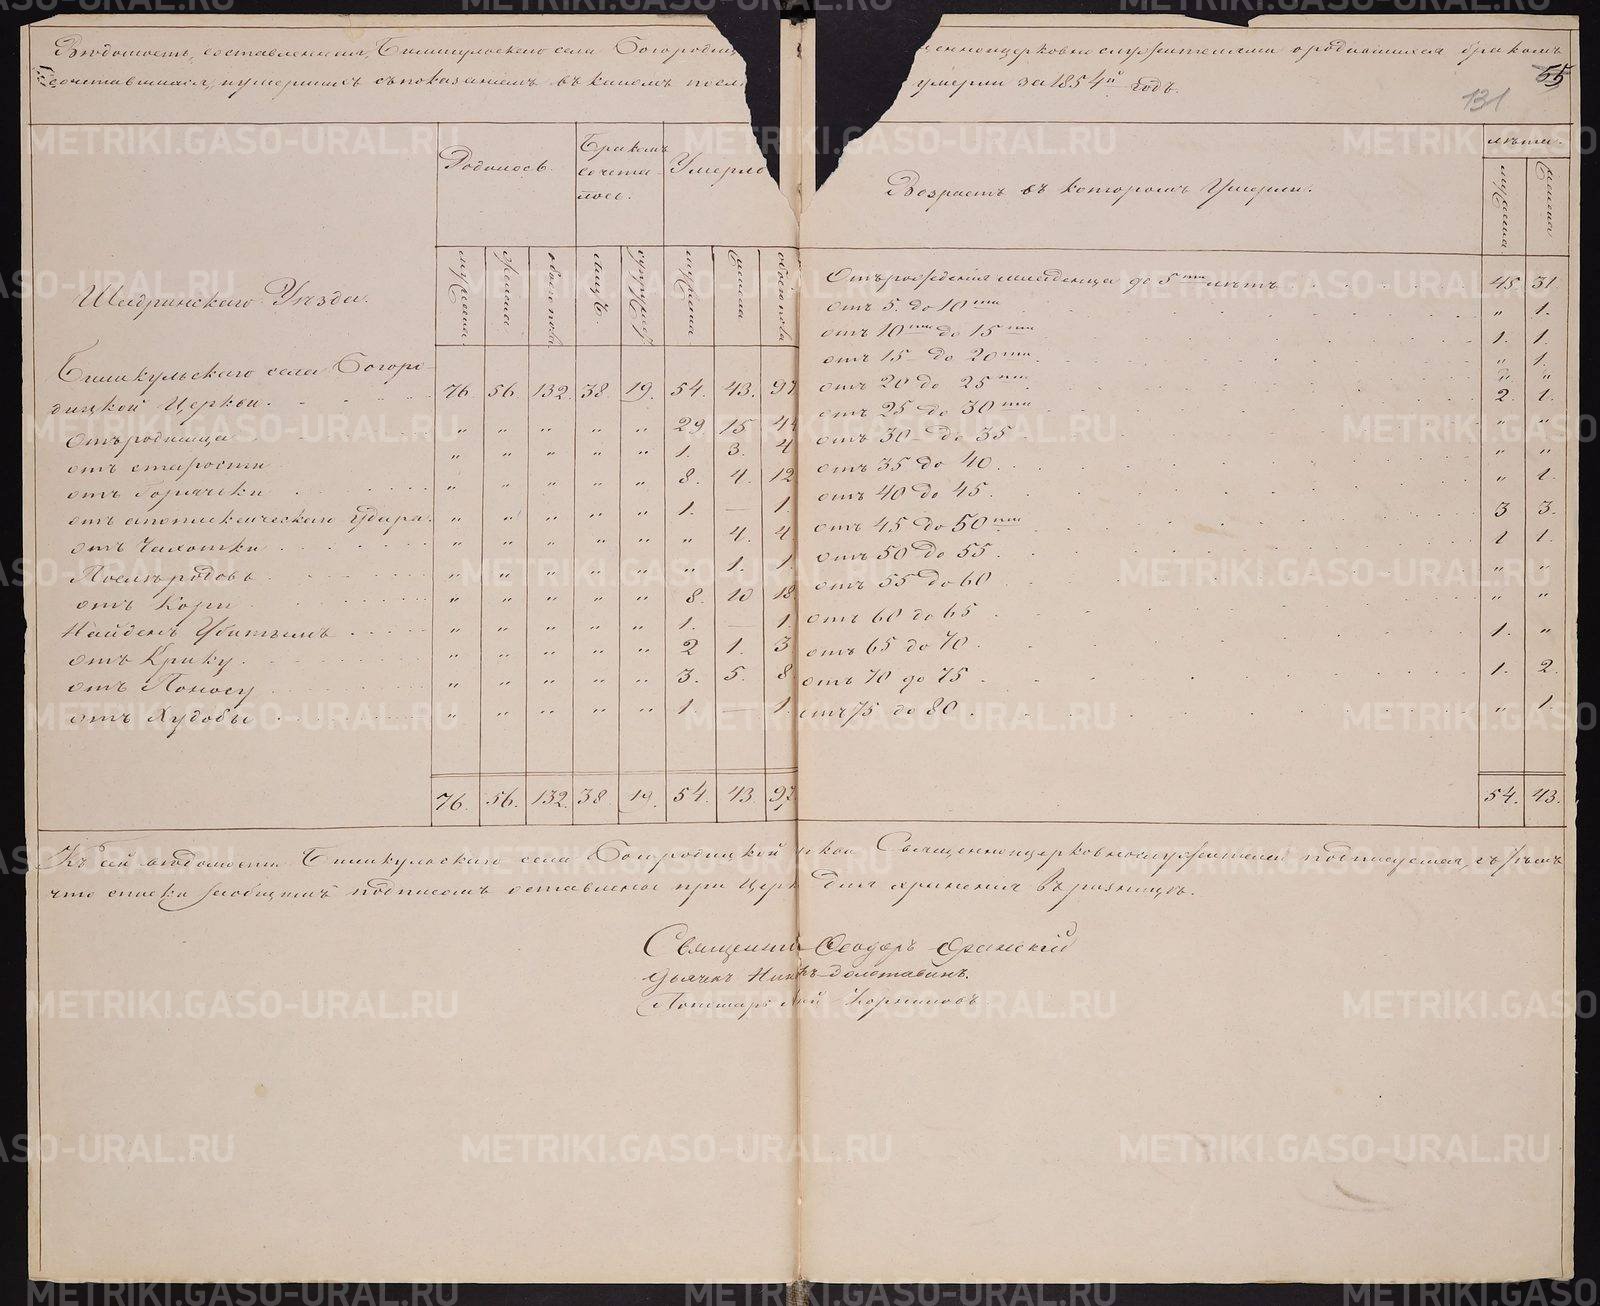 Вѣдомость, составленная, Бишкульскаго села Богородиц щенноцерковнослужителями о родившихся бракомъ
сочетавшихся, и умершихъ съ показаніемъ въ какомъ умерли за 1854й годъ.
55
131
Родилось.
Бракомъ сочета-лось.
Умерло
Возрастъ въ которомъ Умерли.
лѣта.
Шадринскаго Уѣзда.
мужеска.
женска
обоего пола
лицъ.
супружес.
мужеска
женска
обоего пола
мужеска
женска
Бишкульскаго села Богоро-
дицкой Церкви. 76 56. 132. 38. 19. 54. 43. 97
Отъ родимца " " " " " 29 15 44
отъ старости " " " " " 1. 3. 4
отъ горячки " " " " " 8. 4. 12
отъ апоплексическаго удара. " " " " " 1. — 1.
отъ Чахотки " " " " " " 4. 4
Послѣ родовъ " " " " " " 1. 1.
отъ Кори " " " " " 8. 10 18
Найденъ Убитымъ " " " " " 1. — 1.
отъ Крику. " " " " " 2 1. 3
отъ Поносу " " " " " 3. 5. 8
отъ Худобы " " " " " 1. — 1.
76. 56. 132. 38. 19. 54. 43 97.
Отъ рожденія младенца до 5ти лѣтъ 45. 31
отъ 5. до 10ти " 1.
отъ 10ти до 15ти 1. 1.
отъ 15 до 20ти " 1.
отъ 20 до 25ти " "
отъ 25 до 30ти 2. 1.
отъ 30 до 35 " "
отъ 35 до 40. " "
отъ 40 до 45. " 1.
отъ 45 до 50ти 3 3.
отъ 50 до 55. 1 1.
отъ 55 до 60 " "
отъ 60 до 65 " "
отъ 65 до 70. 1. "
отъ 70 до 75 1. 2.
отъ 75 до 80 " 1.
54. 43.
Къ сей вѣдомости Бишкульскаго села Богородицкой Священноцерковнослужители подписуемся, съ тѣмъ
что списки за общимъ подписомъ оставлены при Церк для храненія въ ризницѣ.
Священник Феодоръ
Дьячекъ
Пономарь Корниловъ
METRIKI.GASO-URAL.RU